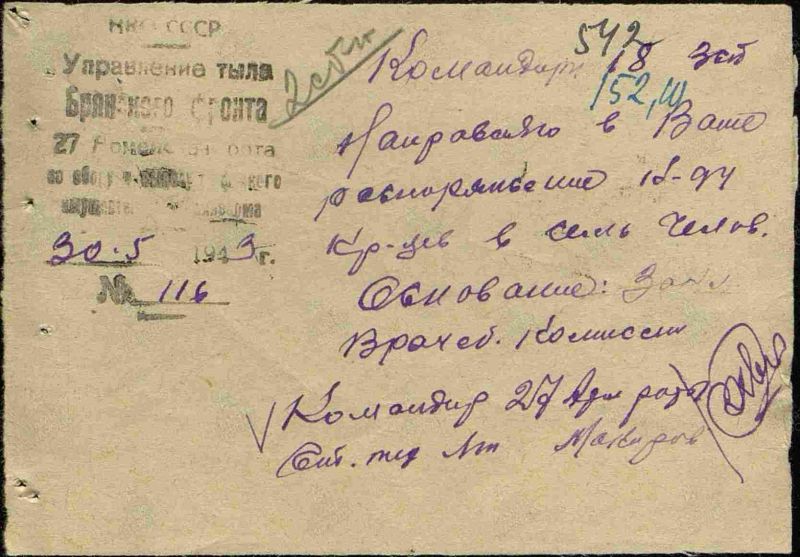 НКО СССР
Управление тыла
Брянского фронта
27 Армейская рота
по сбору
имущества
30.5 1943 г.
№ 116
2 сбн
542
Командиру 18 зсп
152,
Направляю в Ваше
распоряжение
кр-цев в семь челов.
Основание: Закл
Врачеб. Комиссии
Командир 27 Арм роты
Лт Макаров